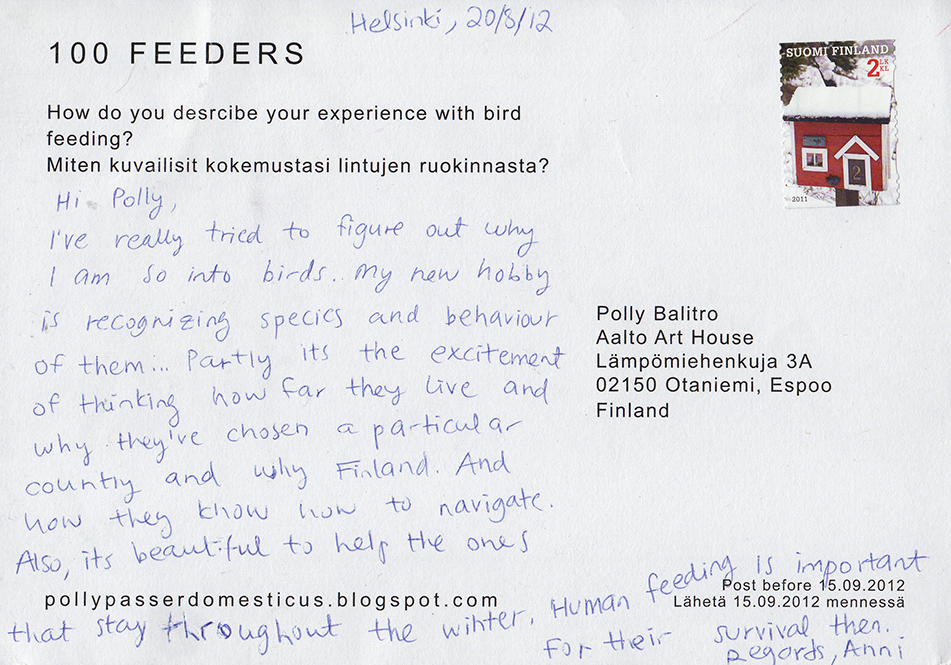 Helsinki, 20/8/12
100 FEEDERS
SUOMI FINLAND
2 LK
KL
2
2011
How do you desrcibe your experience with bird
feeding?
Miten kuvailisit kokemustasi lintujen ruokinnasta?
Hi Polly,
I've really tried to figure out why
I am so into birds.. My new hobby
is recognizing species and behaviour
of them... Partly its the excitement
of thinking how far they live and
why they've chosen a particular
country and why Finland. And
how they know how to navigate.
Also, its beautiful to help the ones
that stay throughout the winter. Human feeding is important
for their survival then.
Regards, Anni
Polly Balitro
Aalto Art House
Lämpömiehenkuja 3A
02150 Otaniemi, Espoo
Finland
pollypasserdomesticus.blogspot.com
Post before 15.09.2012
Lähetä 15.09.2012 mennessä